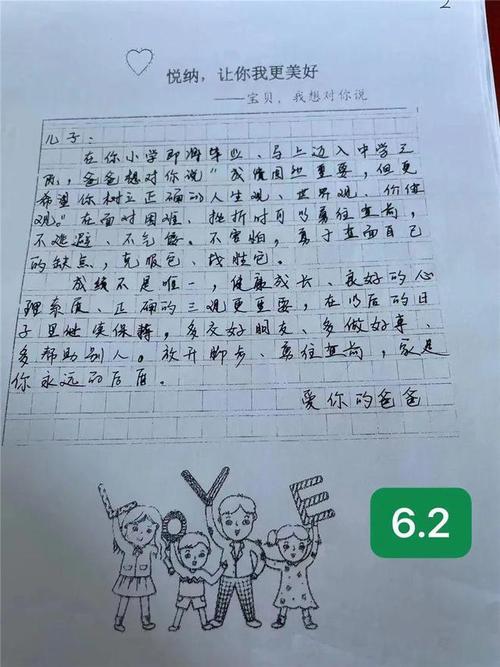 2
悦纳，让你我更美好
——宝贝，我想对你说
儿子：
在你小学即将毕业、马上迈入中学之
际，爸爸想对你说"成绩固然重要，但更
希望你树立正确的人生观、世界观、价值
观。"在面对困难、挫折时可以勇往直前，
不逃避、不气馁。不害怕，勇于直面自己
的缺点，克服它、战胜它。
成绩不是唯一，健康成长、良好的心
理素质、正确的三观更重要，在以后的日
子里继续保持，多交好朋友、多做好事、
多帮助别人。放开脚步、勇往直前，家是
你永远的后盾。
爱你的爸爸
LOVE
6.2